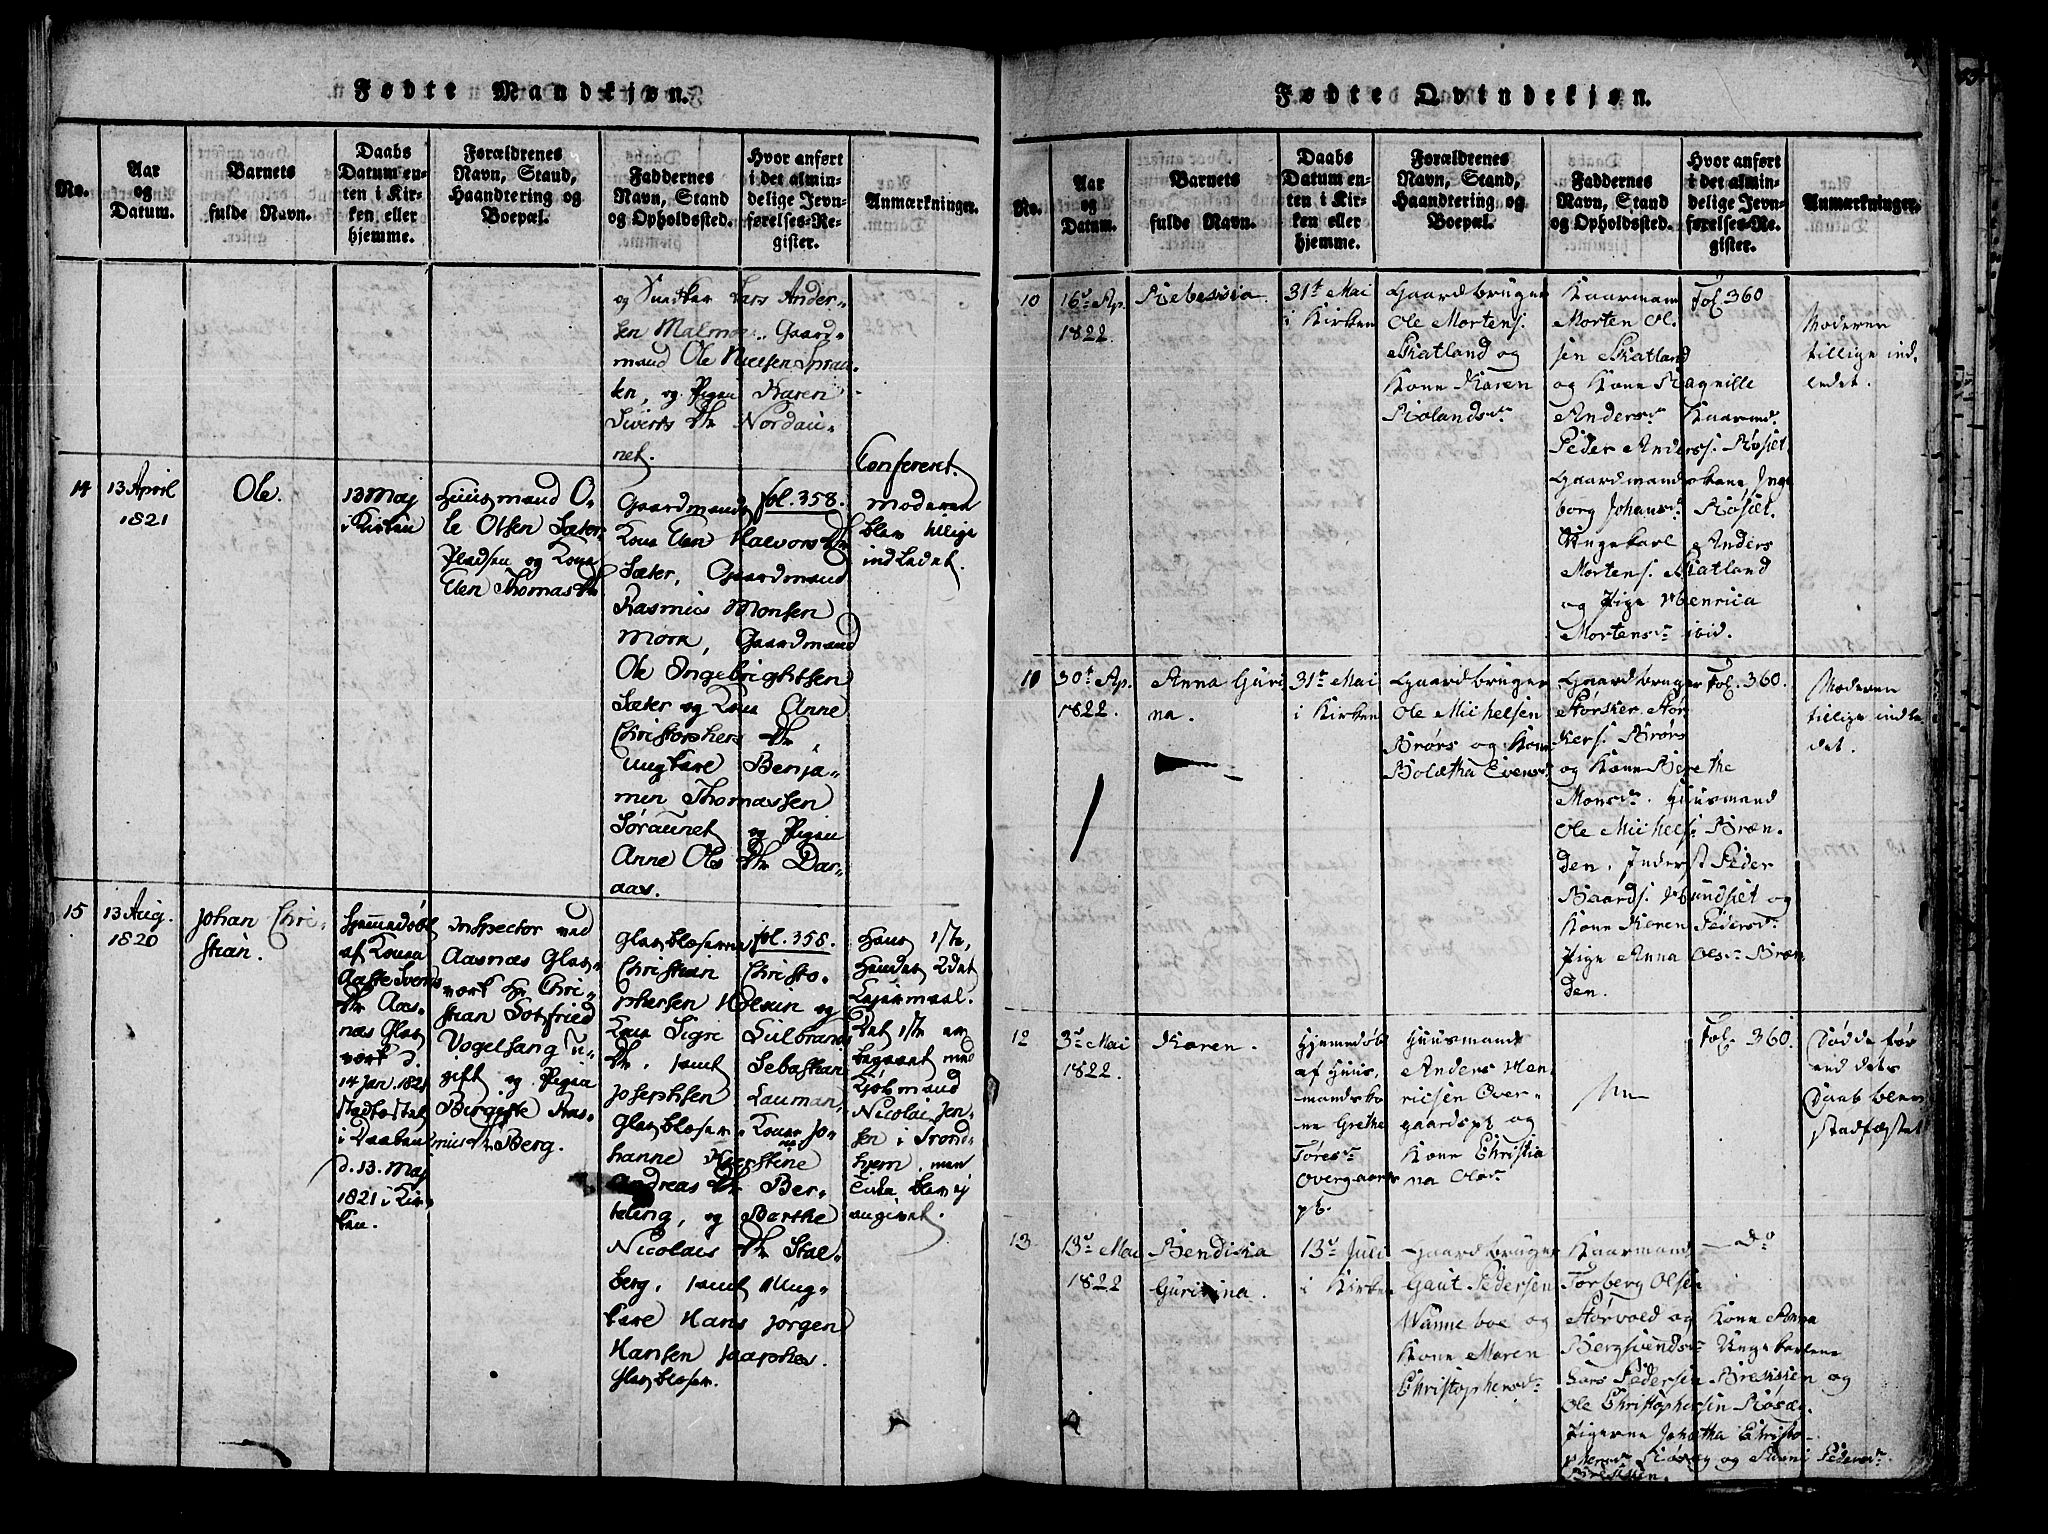 Fødte Mandkjøn.
No.
Aar
og
Datum.
Barnets
fulde Navn.
Daabs
Datum en-
ten i Kir-
ken eller
hjemme.
Forældrenes
Navn, Stand,
Haandtering og
Boepæl.
Faddernes
Navn, Stand
og Opholdssted.
Hvor anført
i det almin-
delige Jevn-
førelses-Re-
gister.
Anmærkninger.
og Snedker Lars Ander-
sen Malmoe, Gaard-
mand Ole Nielsen
ken, og Pigen Karen
Siverts Dtr Nordau-
net.
14
13 April
1821
Ole.
13 Maj
i Kirken
Huusmand O-
le Olsen Sæter
Pladsen og Kone
Elen Thomas Dtr
Gaardmands
Kone Elen Halvors Dtr
Sæter, Gaardmand
Rasmus Monsen
Mork, Gaardmand
Ole Ingebrightsen
Sæter og Kone Anne
Christophers Dtr,
Ungkarl Benja-
men Thomassen
Søraunet og Pigen
Anne Ols Dtr Dar-
aas.
fol. 358.
Confereret.
moderen
blev tillige
indledet.
15
13 Aug.
1820
Johan Chri-
stian.
Hjemmedøbt
af Konen
Aaste Svends
Dtr Aas-
næs Glas
værk d.
14 Jan. 1821
stadfæstet
i Daaben
d. 13. Maj
1821 i Kir-
ken.
Inspector ved
Aasnæs Glas-
værk Hr Chri-
stian Gotfried
Vogelsang u-
gift og Pigen
Birgitte Ras-
mus Dtr Berg.
Glasblæserne
Christian Christo-
phersen Olsen og
Kone Sigri Gulbrands
Dtr, samt Sebastian
Josephsen Lauman,
Glasblæser. Konen Jo-
hanne Kjerstine
Andreas Dtr Ber-
teling, og Berthe
Nicolais Dtr Stal-
berg, samt Ung-
karl Hans Jørgen
Hansen
Glasblæser.
fol. 358.
Hans 1ste,
Hendes 2det
Lejermaal.
Det 1ste er
begaaet med
Kjøbmand
Nicolai Jen-
sen i Trond-
hjem, men
Tiden blev ej
angivet.
Fødte Qvindekjøn.
No.
Aar
og
Datum.
Barnets
fulde Navn.
Daabs
Datum en-
ten i Kir-
ken eller
hjemme.
Forældrenes
Navn, Stand,
Haandtering og
Boepæl.
Faddernes
Navn, Stand
og Opholdssted.
Hvor anført
i det almin-
delige Jevn-
førelses-Re-
gister.
Anmærkninger.
10
16de Ap.
1822.
Rebekka.
31te Mai
i Kirken
Gaardbruger
Ole Mortens.
Skatland og
Kone Karen
Roalandsdr
Kaarmand
Morten Ol-
sen Skatland
og Kone Ragnille
Andersdr Kaarmd.
Peder Anderss. Røset.
Gaardmandskone Inge
borg Johansdr Røset.
Ungekarl Anders
Mortens. Skatland
og Pige Henrica
Mortensdr ibid.
Fol 360
Moderen
tillige ind-
ledet.
11
30te Ap.
1822.
Anna Guri
na.
31te Mai
i Kirken
Gaardbruger
Ole Michelsen
Brørs og Kone
Bolætha Evensdr
Gaardbruger
Størker Stør
kers. Brørs
og Kone Berethe
Monsdr. Huusmand
Ole Michels. Bræn-
den, Inderst Peder
Baards. Hundset og
Kone Karen Pedersdr
Pige Anna Olsdr Bræn
den.
Fol. 360.
Moderen
tillige indle
det.
12
3de Mai
1822.
Karen.
Hjemedøb
af Huus-
mandsko
ne Grethe
Toresdr
Overgaards
pl.
Huusmand
Anders Hen
ricsen Over-
gaardspl. og
Kone Christia
na Olsdr
Fol. 360.
Døde før
end dets
Daab blev
stadfæstet
13
13de Mai
1822
Bendikka
Gurina.
13de Juli
i Kirken
Gaardbruger
Gaut Pedersen
Wanneboe og
Kone Maren
Christophersdr
Kaarmand
Torberg Olsen
Størvold og Kone Anna
Bergsvendsdr Ungekarlene
Lars Pedersen Brekken og
Ole Christophersen Røsæ.
Pigerne Johætha Christo-
phersdr Røsæg og Pedersdr
Brekken.
do